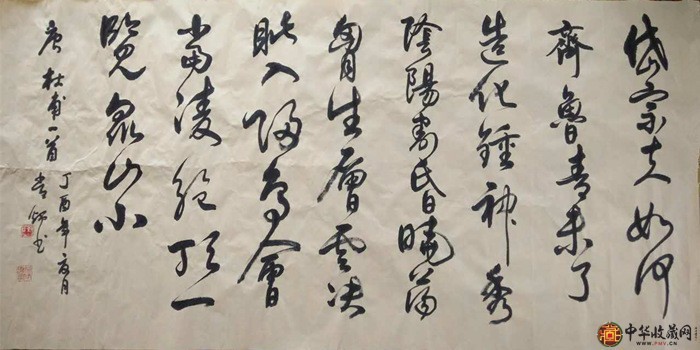 岱宗夫如何
齊魯青未了
造化鍾神秀
陰陽割昏曉蕩
胷生層雲决
眦入歸鳥會
當凌絕頂一
覽眾山小
唐杜甫一首
丁酉年夏月
书
中华收藏网
WWW.PMV.CN